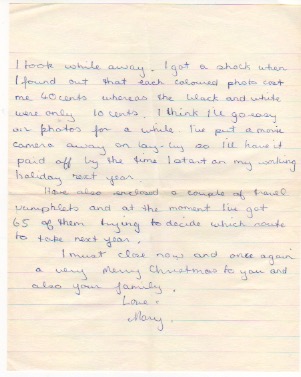 I took while away. I got a shock when
I found out that each coloured photo cost
me 40 cents whereas the black and white
were only 10 cents. I think I'll go easy
on photos for a while. I've put a movie
camera away on lay-by so I'll have it
paid off by the time I start on my working
holiday next year.
Have also enclosed a couple of travel
pamphlets and at the moment I've got
65 of them trying to decide which route
to take next year.
I must close now and once again
a very Merry Christmas to you and
also your family.
Love,
Mary.